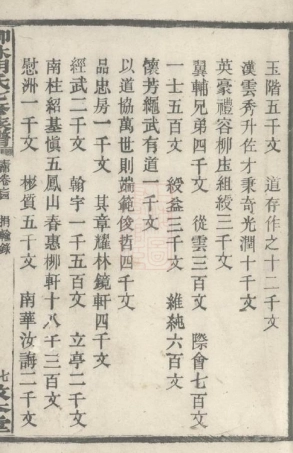 玉階五千文　道存作之十二千文
漢雲秀升佐才秉奇光潤十千文
英豪禮容柳庄組綬三千文
翼輔兄弟四千文　從雲三百文　際會七百文
一士五百文　綬益三千文　維純六百文
懷芳繩武有道一千文
以道協萬世則端範俊哲四千文
品忠房一千文　其章耀林鏡軒四千文
經武二千文　翰宇一千五百文　立亭二千文
南桂紹基慎五鳳山春惠柳軒十八千三百文
慰洲一千文　彬質五千文　南華汝誨二千文
卷三　捐輸錄
七